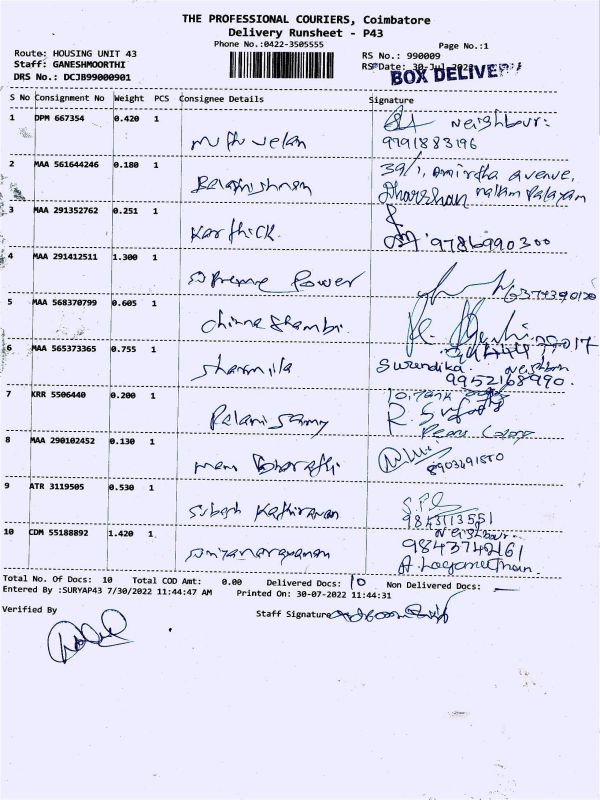 THE PROFESSIONAL COURIERS, Coimbatore
Delivery Runsheet - P43
Phone No.:0422-3505555
Page No.:1
Route: HOUSING UNIT 43
RS No.: 990009
Staff: GANESHMOORTHI
RS Date: 30-Jul-2022
DRS No.: DCJB99000901
BOX DELIVE
S No Consignment No Weight PCS Consignee Details Signature
1 DPM 667354 0.420 1 Neighbour:
muthu velan 9791883196
2 MAA 561644246 0.180 1 39/1, Amirtha avenue,
Balakrishnan Dharshan nallam Palayam
3 MAA 291352762 0.251 1
Karthick. 9786990300
4 MAA 291412511 1.300 1
supreme Power
5 MAA 568370799 0.605 1
chinna thambi.
6 MAA 565373365 0.755 1 Surendika. Neighbour
sharmila 9952168990.
7 KRR 5506440 0.200 1
Palanisamy R.
8 MAA 290102452 0.130 1
mani Bharathi 8903491550
9 ATR 3119505 0.530 1
subash Kathiravan 9843113551
10 CDM 55188892 1.420 1 Neighbour.
suriyanarayanan 9843742161
A. Loganathan.
Total No. Of Docs: 10 Total COD Amt: 0.00 Delivered Docs: 10 Non Delivered Docs: —
Entered By :SURYAP43 7/30/2022 11:44:47 AM Printed On: 30-07-2022 11:44:31
Verified By Staff Signature